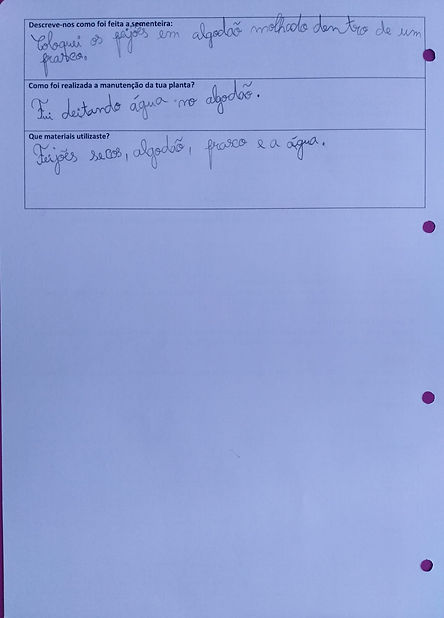 Descreve-nos como foi feita a sementeira:
Coloquei os feijões em algodão molhado dentro de um
frasco.
Como foi realizada a manutenção da tua planta?
Fui deitando água no algodão.
Que materiais utilizaste?
Feijões secos, algodão, frasco e a água.